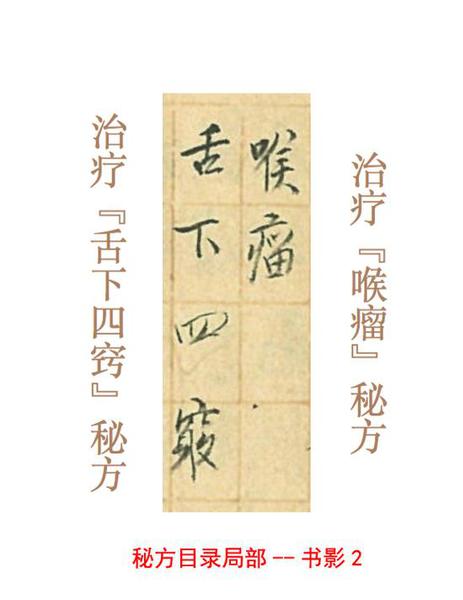 治疗『喉瘤』秘方
喉瘤
舌下四竅
治疗『舌下四窍』秘方
秘方目录局部 -- 书影 2